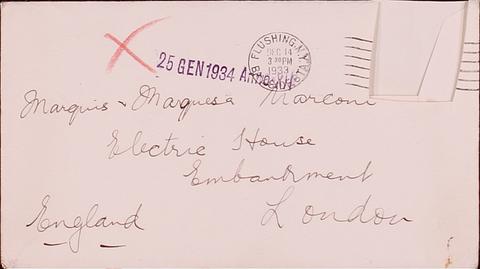 FLUSHING, N.Y.
DEC 14
3 30 PM
1933
25 GEN 1934
Marquis & Marquesa Marconi
Electric House
Embankment
England London